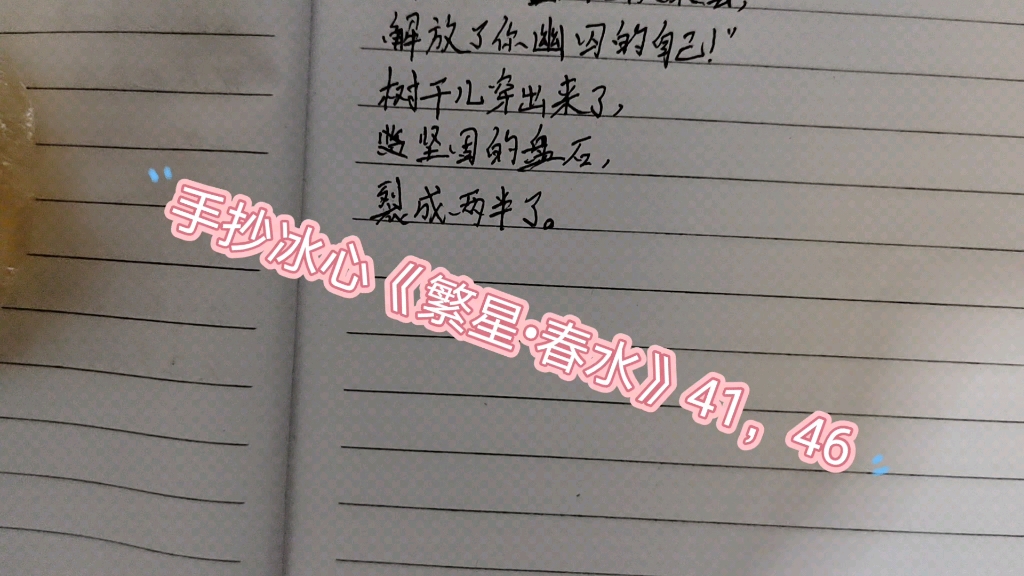 解放了你幽囚的自己!”
树干儿穿出来了,
坚固的盘石,
裂成两半了。
手抄冰心《繁星·春水》41,46